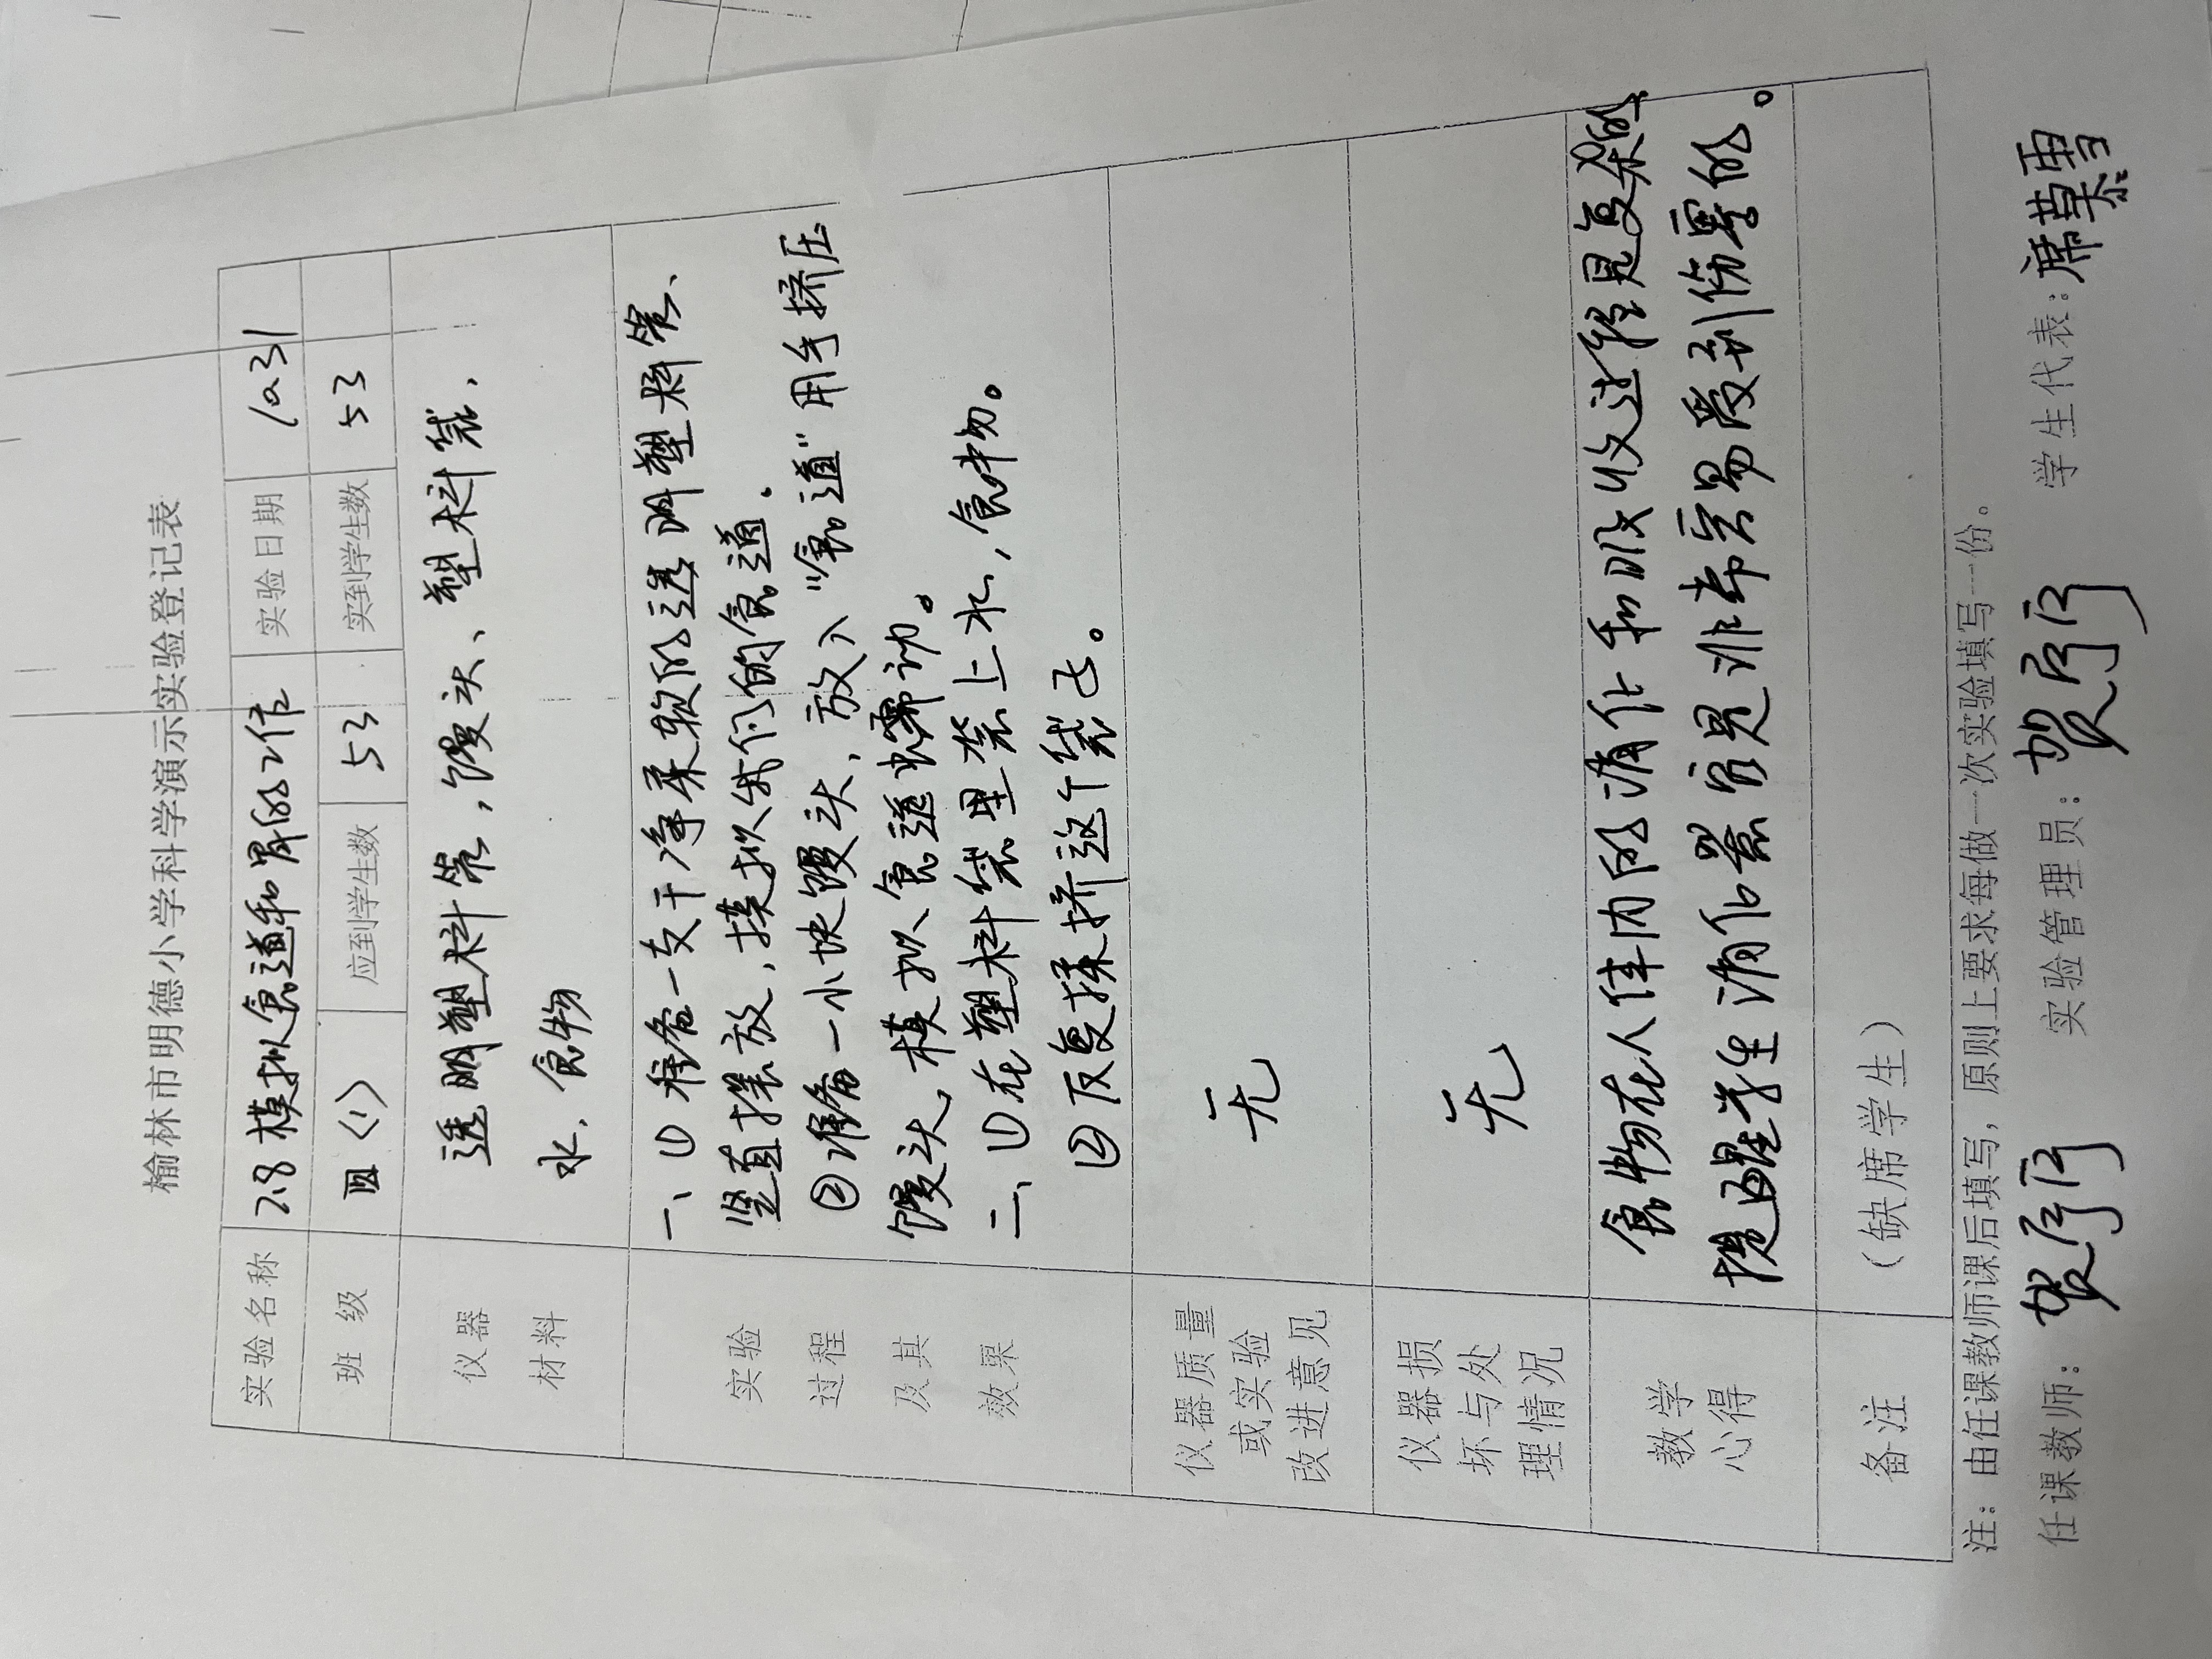 榆林市明德小学科学演示实验登记表
实验名称 2.8模拟食道和胃的工作 实验日期 10.31
班 级 四<1> 应到学生数 53 实到学生数 53
仪器
材料
透明塑料管,馒头、塑料袋,
水,食物
实验
过程
及其
效果
一、①准备一支干净柔软的透明塑料管、
竖直摆放,摸拟我们的食道.
②准备一小块馒头,放入“食道”用手挤压
馒头,模拟食道蠕动。
二、①在塑料袋里装上水,食物。
②反复揉挤这个袋子。
仪器质量
或实验
改进意见
无
仪器损
坏与处
理情况
无
教学
心得
食物在人体内的消化和吸收过程是复杂的
提醒学生消化器官是非常容易受到伤害的。
备注
(缺席学生)
注:由任课教师课后填写,原则上要求每做一次实验填写一份。
任课教师: 实验管理员: 学生代表:席慕雪